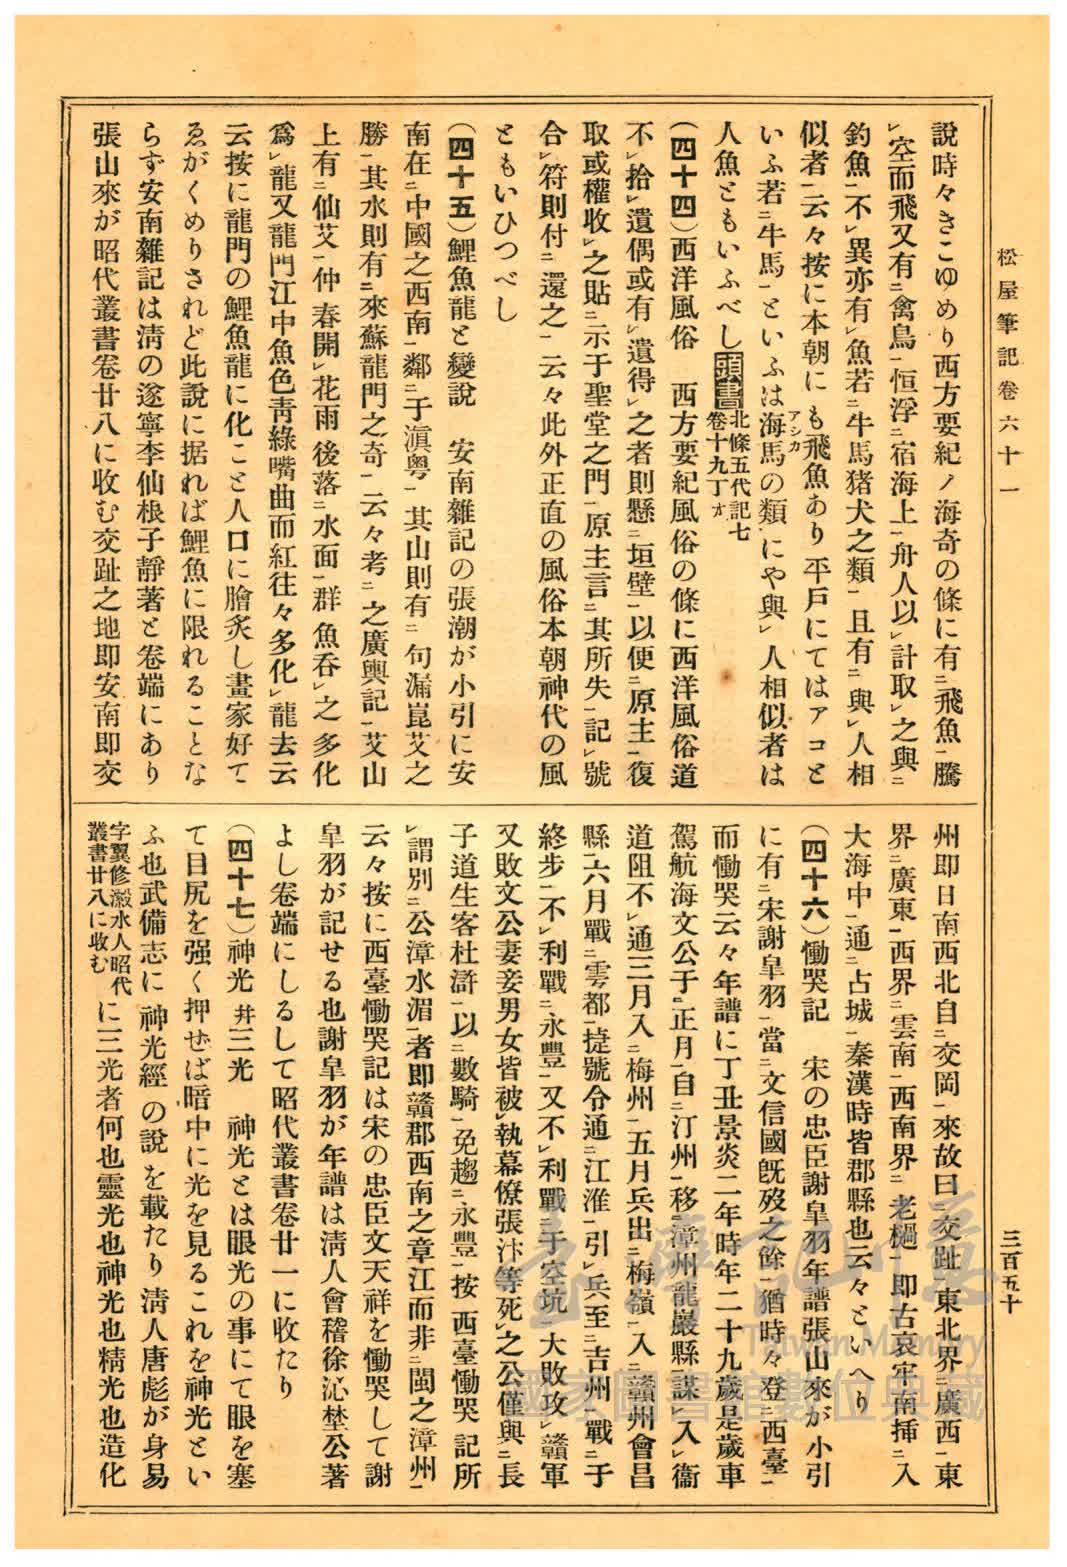 松屋筆記卷六十一
三百五十
說時々きこゆめり西方要紀ノ海奇の條に有ニ飛魚一騰
レ空而飛又有ニ禽鳥一恒浮ニ宿海上一舟人以レ計取レ之與ニ
釣魚一不レ異亦有レ魚若ニ牛馬猪犬之類一且有ニ與レ人相
似者一云々按に本朝にも飛魚あり平戶にてはアコと
いふ若ニ牛馬一といふは海馬アシカの類にや與レ人相似者は
人魚ともいふべし頭書北條五代記七卷十九丁オ
(四十四)西洋風俗　西方要紀風俗の條に西洋風俗道
不レ拾レ遺偶或有レ遺得レ之者則懸ニ垣壁一以便ニ原主一復
取或權收レ之貼ニ示于聖堂之門一原主言ニ其所失一記レ號
合レ符則付ニ還之一云々此外正直の風俗本朝神代の風
ともいひつべし
(四十五)鯉魚龍と變說　安南雜記の張潮が小引に安
南在ニ中國之西南一鄰ニ于滇粤一其山則有ニ句漏崑艾之
勝一其水則有ニ來蘇龍門之奇一云々考ニ之廣輿記一艾山
上有ニ仙艾一仲春開レ花雨後落ニ水面一群魚呑レ之多化
爲レ龍又龍門江中魚色靑綠嘴曲而紅往々多化レ龍去云
云按に龍門の鯉魚龍に化こと人口に膾炙し畫家好て
ゑがくめりされど此說に据れば鯉魚に限れることな
らず安南雜記は淸の遂寧李仙根子靜著と卷端にあり
張山來が昭代叢書卷廿八に收む交趾之地即安南即交
州即日南西北自ニ交岡一來故曰ニ交趾一東北界ニ廣西一東
界ニ廣東一西界ニ雲南一西南界ニ老檛一即古哀牢南挿ニ入
大海中一通ニ占城一秦漢時皆郡縣也云々といへり
(四十六)慟哭記　宋の忠臣謝皐羽年譜張山來が小引
に有ニ宋謝皐羽一當ニ文信國旣歿之餘一猶時々登ニ西臺一ニ
而慟哭云々年譜に丁丑景炎二年時年二十九歲是歲車
駕航海文公于ニ正月一自ニ汀州一移ニ漳州龍巖縣一謀レ入レ衞
道阻不レ通三月入ニ梅州一五月兵出ニ梅嶺一入ニ贛州會昌
縣一六月戰ニ雩都一捷號令通ニ江淮一引レ兵至ニ吉州一戰ニ于
終步一不レ利戰ニ永豐一又不レ利戰ニ于空坑一大敗攻レ贛軍
又敗文公妻妾男女皆被レ執幕僚張汴等死レ之公僅與ニ長
子道生客杜滸一以ニ數騎一免趨ニ永豐一按西臺慟哭記所
レ謂別ニ公漳水湄一者即贛郡西南之章江而非ニ閩之漳州一
云々按に西臺慟哭記は宋の忠臣文天祥を慟哭して謝
皐羽が記せる也謝皐羽が年譜は淸人會稽徐沁埜公著
よし卷端にしるして昭代叢書卷廿一に收たり
(四十七)神光幷三光　神光とは眼光の事にて眼を塞
て目尻を强く押せば暗中に光を見るこれを神光とい
ふ也武備志に神光經の說を載たり淸人唐彪が身易
字翼修瀫水人昭代叢書廿八に收むに三光者何也靈光也神光也精光也造化
臺灣記憶
Taiwan Memory
國家圖書館數位典藏